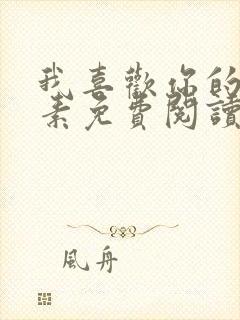 我喜歡你的
素免費閱讀
風舟